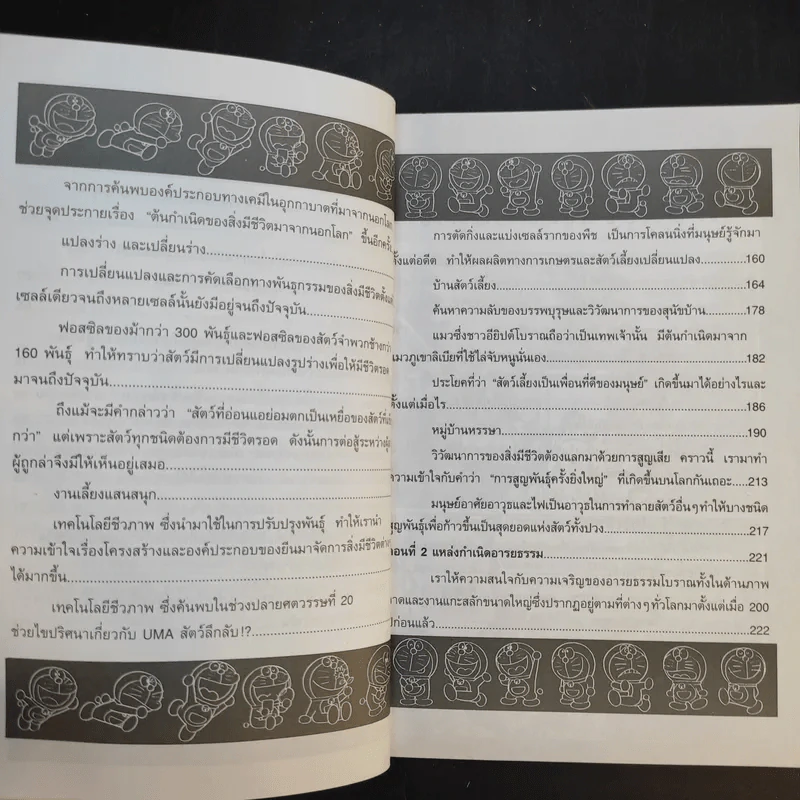 จากการค้นพบองค์ประกอบทางเคมีในอุกกาบาตที่มาจากนอกโลก
ช่วยจุดประกายเรื่อง “ต้นกำเนิดของสิ่งมีชีวิตมาจากนอกโลก” ขึ้นอีกครั้ง
แปลงร่าง และเปลี่ยนร่าง.........................
การเปลี่ยนแปลงและการคัดเลือกทางพันธุกรรมของสิ่งมีชีวิตตั้งแต่
เซลล์เดียวจนถึงหลายเซลล์นั้นยังมีอยู่จนถึงปัจจุบัน.............
ฟอสซิลของม้ากว่า 300 พันธุ์และฟอสซิลของสัตว์จำพวกช้างกว่า
160 พันธุ์ ทำให้ทราบว่าสัตว์มีการเปลี่ยนแปลงรูปร่างเพื่อให้มีชีวิตรอด
มาจนถึงปัจจุบัน...................................
ถึงแม้จะมีคำกล่าวว่า “สัตว์ที่อ่อนแอย่อมตกเป็นเหยื่อของสัตว์ที่
กว่า” แต่เพราะสัตว์ทุกชนิดต้องการมีชีวิตรอด ดังนั้นการต่อสู้ระหว่าง
ผู้ถูกล่าจึงมีให้เห็นอยู่เสมอ.........................
งานเลี้ยงแสนสนุก.........................
เทคโนโลยีชีวภาพ ซึ่งนำมาใช้ในการปรับปรุงพันธุ์ ทำให้เรานำ
ความเข้าใจเรื่องโครงสร้างและองค์ประกอบของยีนมาจัดการสิ่งมีชีวิตต่างๆ
ได้มากขึ้น...................................
เทคโนโลยีชีวภาพ ซึ่งค้นพบในช่วงปลายศตวรรษที่ 20
ช่วยไขปริศนาเกี่ยวกับ UMA สัตว์ลึกลับ!?.................
การตัดกิ่งและแบ่งเซลล์รากของพืช เป็นการโคลนนิ่งที่มนุษย์รู้จักมา
ตั้งแต่อดีต ทำให้ผลผลิตทางการเกษตรและสัตว์เลี้ยงเปลี่ยนแปลง..........160
บ้านสัตว์เลี้ยง...................................164
ค้นหาความลับของบรรพบุรุษและวิวัฒนาการของสุนัขบ้าน..........178
แมวซึ่งชาวอียิปต์โบราณถือว่าเป็นเทพเจ้านั้น มีต้นกำเนิดมาจาก
แมวภูเขาลิเบียที่ใช้ไล่จับหนูนั่นเอง...................................182
ประโยคที่ว่า “สัตว์เลี้ยงเป็นเพื่อนที่ดีของมนุษย์” เกิดขึ้นมาได้อย่างไรและ
ตั้งแต่เมื่อไร...................................186
หมู่บ้านหรรษา...................................190
วิวัฒนาการของสิ่งมีชีวิตต้องแลกมาด้วยการสูญเสีย คราวนี้ เรามาทำ
ความเข้าใจกับคำว่า “การสูญพันธุ์ครั้งยิ่งใหญ่” ที่เกิดขึ้นบนโลกกันเถอะ....213
มนุษย์อาศัยอาวุธและไฟเป็นอาวุธในการทำลายสัตว์อื่นๆทำให้บางชนิด
สูญพันธุ์เพื่อก้าวขึ้นเป็นสุดยอดแห่งสัตว์ทั้งปวง.........................217
ตอนที่ 2 แหล่งกำเนิดอารยธรรม...................................221
เราให้ความสนใจกับความเจริญของอารยธรรมโบราณทั้งในด้านภาพ
วาดและงานแกะสลักขนาดใหญ่ซึ่งปรากฏอยู่ตามที่ต่างๆทั่วโลกมาตั้งแต่เมื่อ 200
ปีก่อนแล้ว...................................222